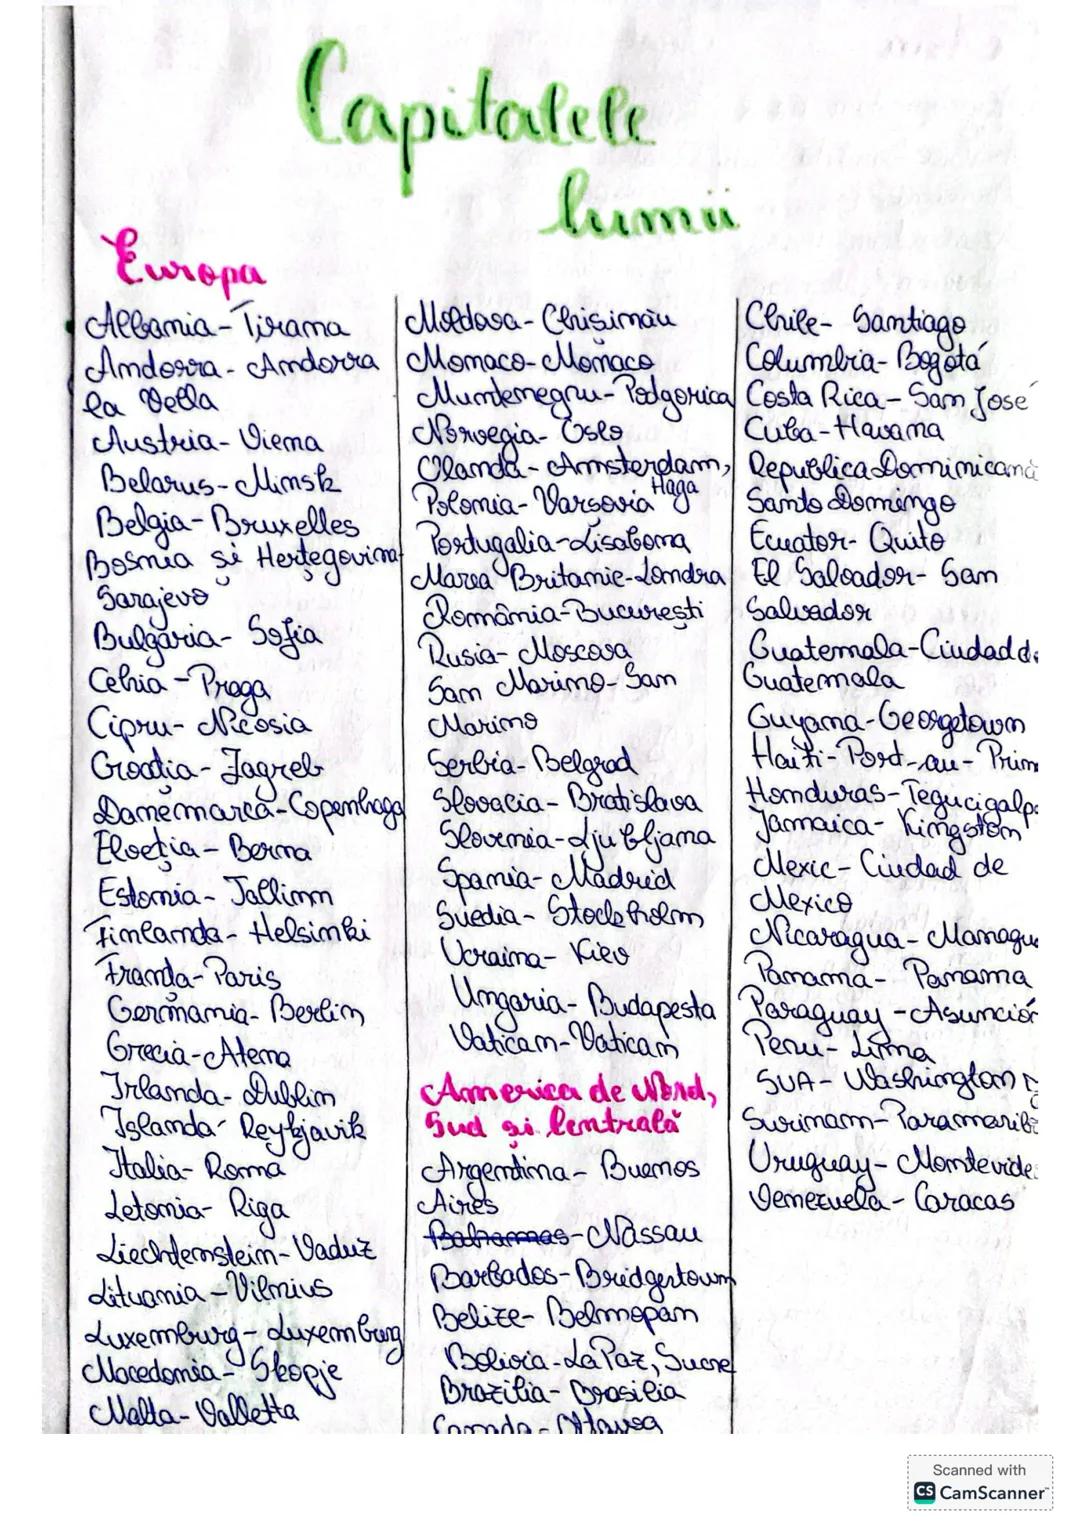 Capitalele
lumii
Europa
Albania-Tirana
Andorra - Andorra
la Vella
Austria-Viena
Belarus-Minsk
Belgia-Bruxelles
Bosnia și Herțegovina
Sarajevo
Bulgaria- Sofia
Cehia-Praga
Cipru- Nicosia
Croația-Zagreb
Danemarca-Copenhaga
Elveția-Berna
Estonia-Tallinn
Finlanda-Helsinki
Franța-Paris
Germania-Berlin
Grecia-Atena
Irlanda-Dublin
Islanda-Reykjavik
Italia-Roma
Letonia-Riga
Liechtenstein-Vaduz
Lituania-Vilnius
Luxemburg-Luxemburg
Macedonia-Skopje
Malta-Valletta
Moldova-Chișinău
Monaco-Monaco
Muntenegru-Podgorica
Norvegia-Oslo
Olanda-Amsterdam,
Haga
Polonia-Varsovia
Portugalia-Lisabona
Marea Britanie-Londra
România-București
Rusia-Moscova
San Marino-San
Marino
Serbia-Belgrad
Slovacia-Bratislava
Slovenia-Ljubljana
Spania-Madrid
Suedia-Stockholm
Ucraina-Kiev
Ungaria-Budapesta
Vatican-Vatican
America de Nord,
Sud și Centrală
Argentina-Buenos
Aires
Bahamas-Nassau
Barbados-Bridgertown
Belize-Belmopan
Bolivia-La Paz, Sucre
Brazilia-Brasilia
Canada-Ottawa
Chile- Santiago
Columbia-Bogotá
Costa Rica-San José
Cuba-Havana
Republica Dominicană
Santo Domingo
Ecuator-Quito
El Salvador-San
Salvador
Guatemala-Ciudad de
Guatemala
Guyana-Georgetown
Haiti-Port-au-Prin
Honduras-Tegucigalpa
Jamaica-Kingston
Mexic-Ciudad de
Mexico
Nicaragua-Managu
Panama-Panama
Paraguay-Asunción
Peru-Lima
SUA-Washington
Surinam-Paramaribo
Uruguay-Montevide
Venezuela-Caracas
Scanned with
CS CamScanner